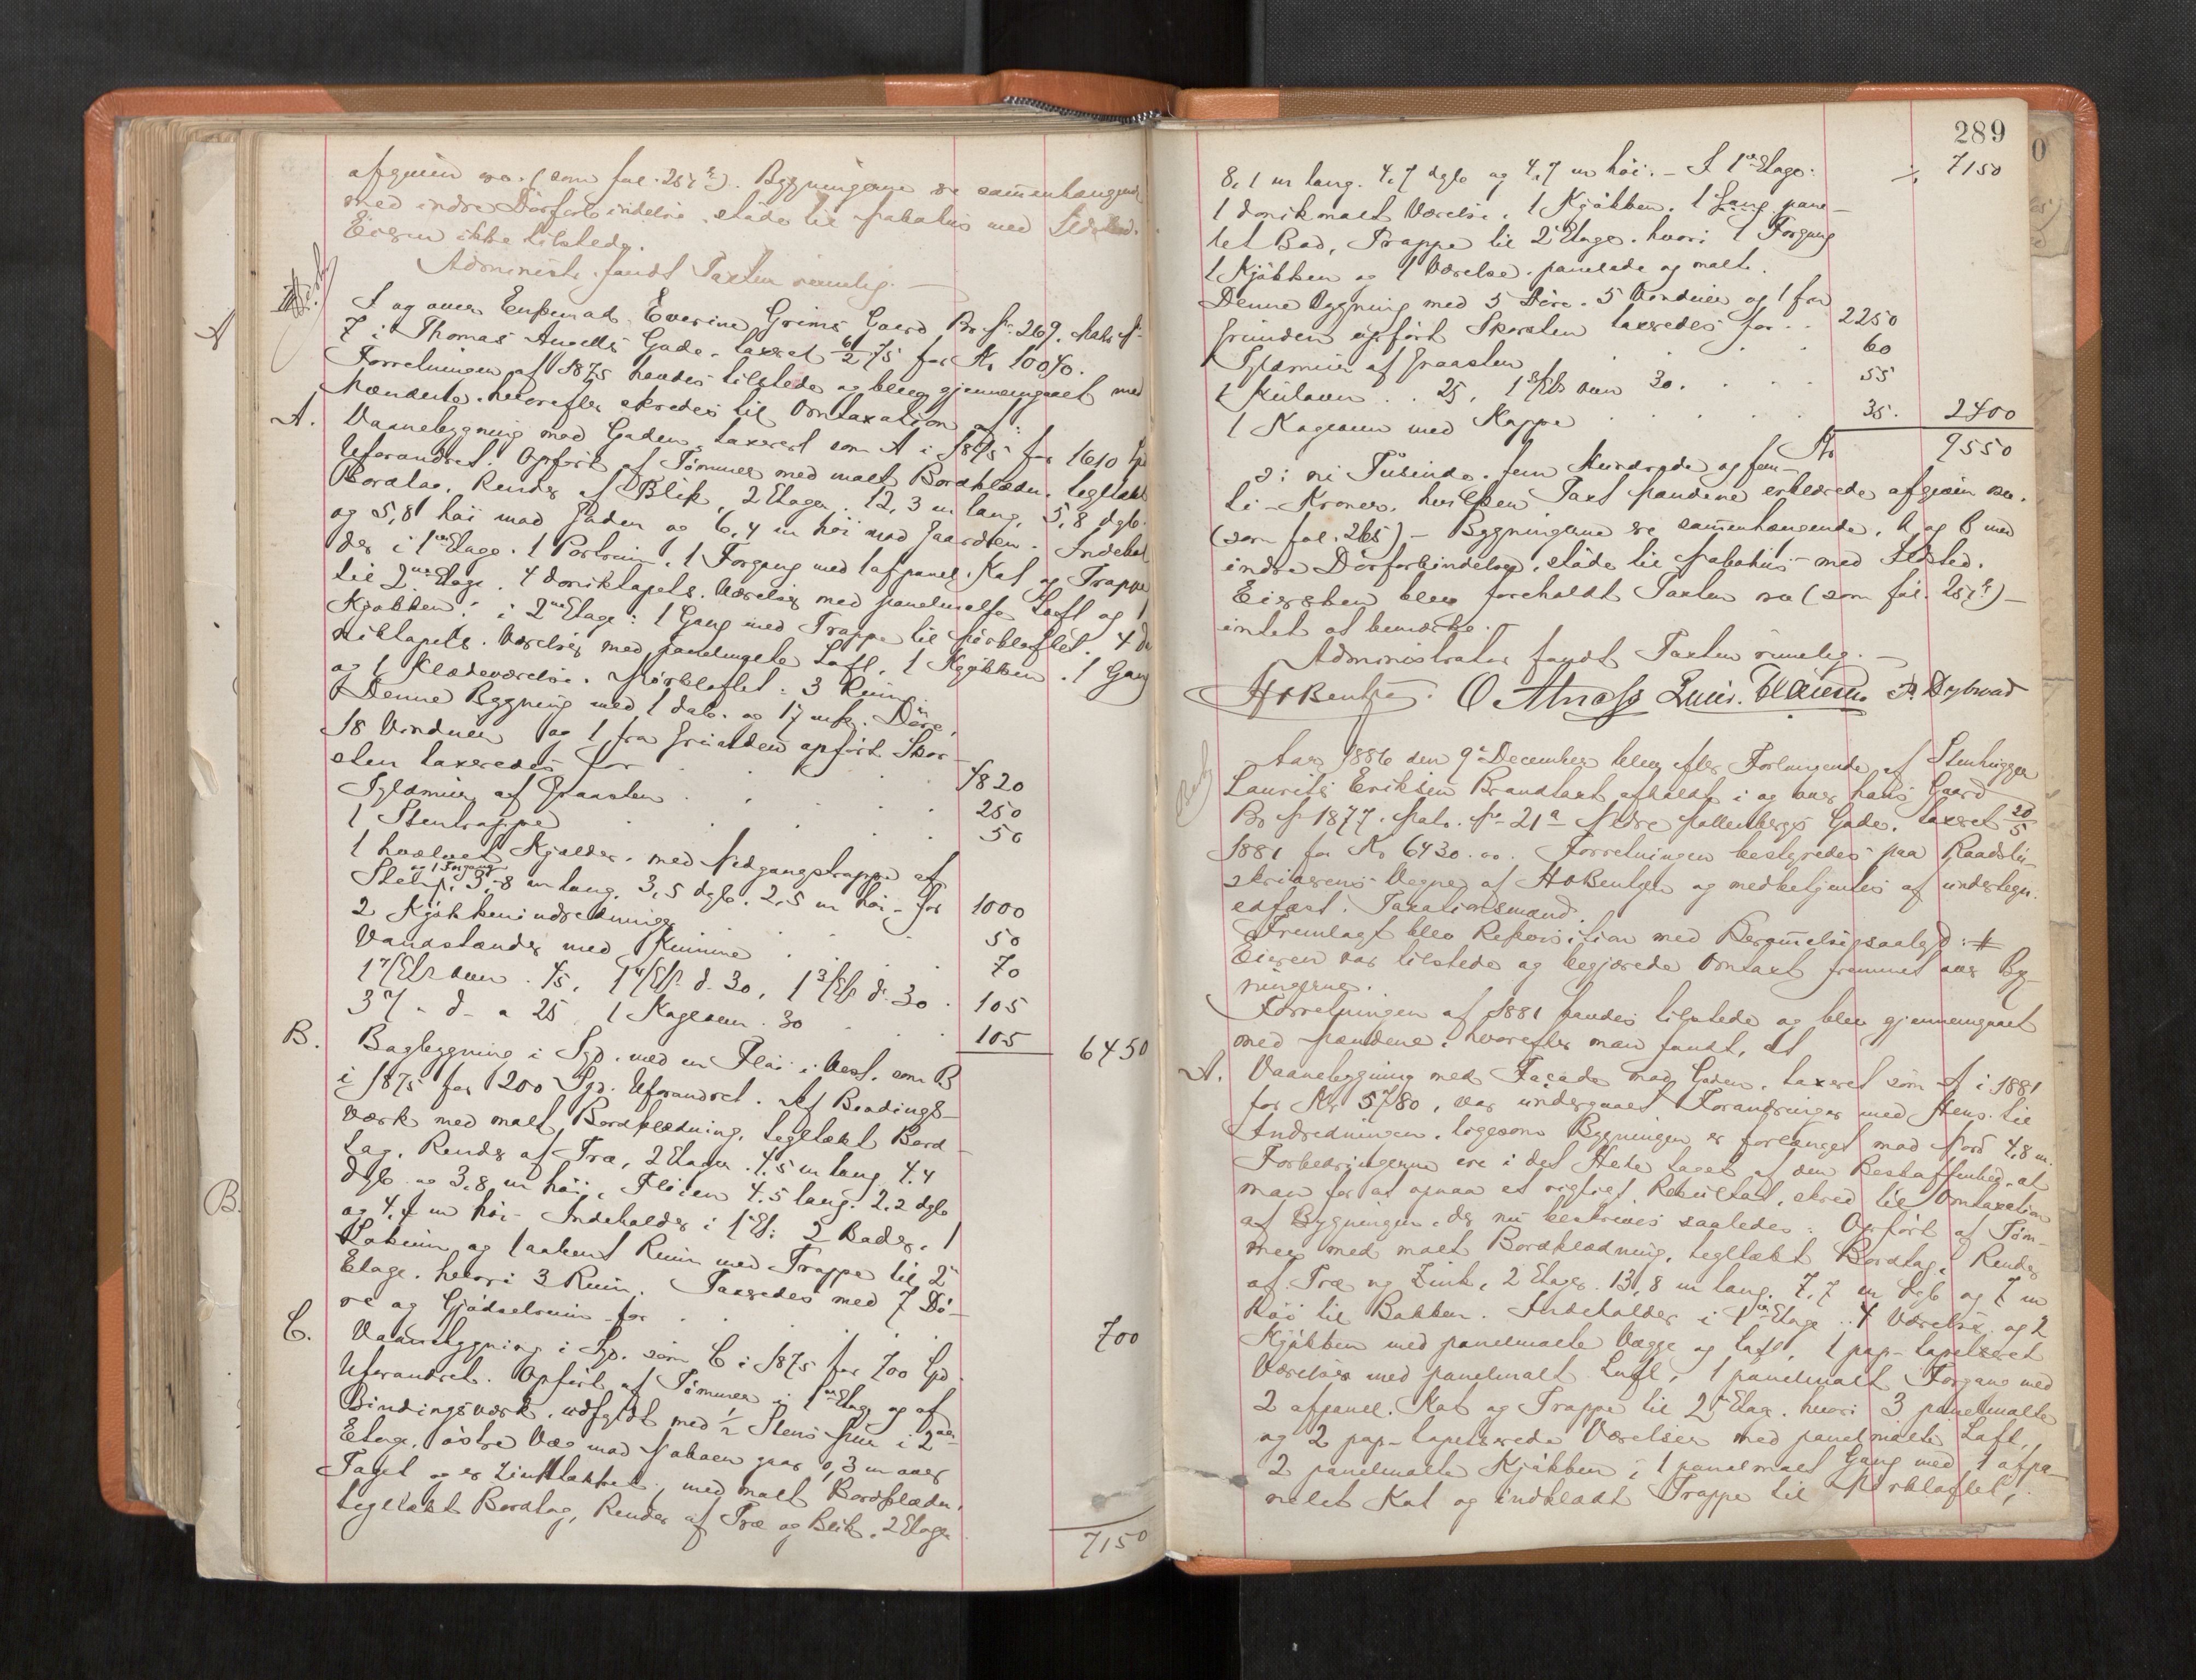 afgiven var (som fol. 257). Bygningerne ere sammenhængende
med indre Dörforbindelse, stöde til Nabohus med Ildsted.
Eieren ikke tilstede.
Administr. fandt Taxten rimelig.
I og over Enkemad. Everine Grims Gaard Br. № 269. Matr. №
7 i Thomas Angells Gade. taxeret 6/2 75 for Kr. 10040.
Forretningen af 1875 havdes tilstede og blev gjennemgaaet med
Mændene, hvorefter skredes til Omtaxation af:
A. Vaanebygning mod Gaden, taxeret som A i 1875 for 1610 Spd
Uforandret. Opfört af Tømmer med malt Bordklædn. tegltækt
Bordtag. Render af Blik, 2 Etager. 12,3 m lang, 5,8 dyb
og 5,8 höi mod Gaden og 6,4 m höi mod Gaarden. Indehol
der i 1ste Etage. 1 Portrum, 1 Forgang med 1 afpanel. Kat og Trappe
til 2den Etage. 4 doriktapets. Værelser med panelmalte Loft og 1
Kjökken. i 2den Etage: 1 Gang med Trappe til Mörkloftet. 4 do
riktapets. Værelser med panelmalte Loft, 1 Kjökken. 1 Gang
og 1 Klædeværelse. Mörkloftet: 3 Rum.
Denne Bygning med 1 dob. og 17 enk. Döre,
18 Vinduer og 1 fra Grunden opfört Skor-
sten taxeredes for . . . 4820
Syldmur af Graasten . . . 250
1 Stentrappe . . . 50
1 hvælvet Kjælder, med Nedgangstrappe af
og 1 Forgang
Sten, 3,8 m lang, 3,5 dyb. 2,5 m höi - for 1000
2 Kjökkenindredninger . . . 50
Vandstænder med Kumme . . . 70
1 7/Ets oven 45, 1 4/Ets d. 30, 1 3/Ets d. 30 . 105
3 2/ " d - a 25 1 Kageoven 30 . . 105 6450
B. Bagbygning i Syd. med en Flöi i Vest. som B
i 1875 for 200 Spd. Uforandret. Af Bindings-
værk med malt Bordklædning, tegltækt Bord-
tag, Render af Træ, 2 Etager. 4,5 m lang 4,4
dyb og 3,8 m höi, Flöien 4,5 lang. 2,2 dyb
og 4,4 m höi. Indeholder i 1ste Et: 2 Boder, 1
Lokum og 1 aabent Rum med Trappe til 2den
Etage, hvori 3 Rum. Taxeredes med 7 Dö-
re og Gjödselrum for . . . 700
C. Vaanebygning i Syd. som C i 1875 for 700 Spd.
Uforandret. Opfört af Tömmer i 1ste Etag. og af
Bindingsværk, udfyldt med 1/2 Stens Mur i 2den
Etage, östre Væg mod Naboen gaar 0,3 m over
Taget og er zinktækket, med malt Bordklædn.
tegltækt Bordtag, Render af Træ og Blik, 2 Etager
7150
289
8,1 m lang. 4,7 dyb og 4,7 m höi. - I 1ste Etage: % 7150
1 dorikmalt Værelse. 1 Kjökken. 1 Gang, pane-
let Bod, Trappe til 2den Etage. hvori 1 Forgang
1 Kjökken og 1 Værelse. panelede og malte.
Denne Bygning med 5 Döre. 5 Vinduer og 1 fra
Grunden opfört Skorsten taxeredes for . . 2250
Syldmur af Graasten . . . 60
1 Kulovn . . 25, 1 3/Ets oven 30. . . 55
1 Kageoven med Kappe . . . 35. 2400
Kr. 9550
ɔ: ni Tusinde. fem Hundrede og fem-
ti - Kroner, hvilken Taxt Mændene erklærede afgiven var.
(som fol. 265) - Bygningerne ere sammenhængende, A og B med
indre Dörforbindelse, stöde til Nabohus med Ildsted.
Eiersken blev foreholdt Taxten var (som fol. 257) -
intet at bemærke. -
Administrator fandt Taxten rimelig. -
H O Bentzen. O. Almaas P. Dybwad
Aar 1886 den 9de December blev efter Forlangende af Stenhugger
Laurits Eriksen Brandtaxt afholdt i og over hans Gaard
Br. № 1877. Matr. № 21a Nedre Møllenbergs Gade. taxeret 20/5
1881 for Kr 6430.00. Forretningen bestyredes paa Raadstu-
skriverens Vegne af H O Bentzen og medbetjentes af undertegn.
edfæst. Taxationsmænd.
Fremlagt blev Rekvisition med Berammelse saalyd: #
Eieren var tilstede og begjærede Omtaxt fremmet over Byg-
ningerne.
Forretningen af 1881 havdes tilstede og blev gjennemgaaet
med Mændene, hvorefter man fandt, at
A. Vaanebygning med Façade mod Gaden, taxeret som A i 1881
for Kr 5780, var undergaaet Forandringer med Hens. til
Indredningen, ligesom Bygningen er forlænget mod Nord 4,8 m.
Forbedringerne ere i det Hele taget af den Beskaffenhed, at
man for at opnaa et rigtigt Resultat, skred til Omtaxation
af Bygningen, der nu beskrives saaledes: Opfört af Töm-
mer med malt Bordklædning, tegltækt Bordtag, Render
af Træ og Zink, 2 Etager. 13,8 m lang. 7,7 m dyb og 7 m
höi til Bakken. Indeholder i 1ste Etage: 4 Værelser og 2
Kjökken med panelmalte Vægge og Loft, 1 pap-tapetseret
Værelse med panelmalt Loft, 1 panelmalt Forgang med
2 afpanel. Kat og Trappe til 2den Etag. hvori 3 panelmalte
og 2 pap-tapetserede Værelser med panelmalte Loft,
2 panelmalte Kjökken, 1 panelmalt Gang med 1 afpa-
nelet Kat og indklædt Trappe til Mörkloftet,